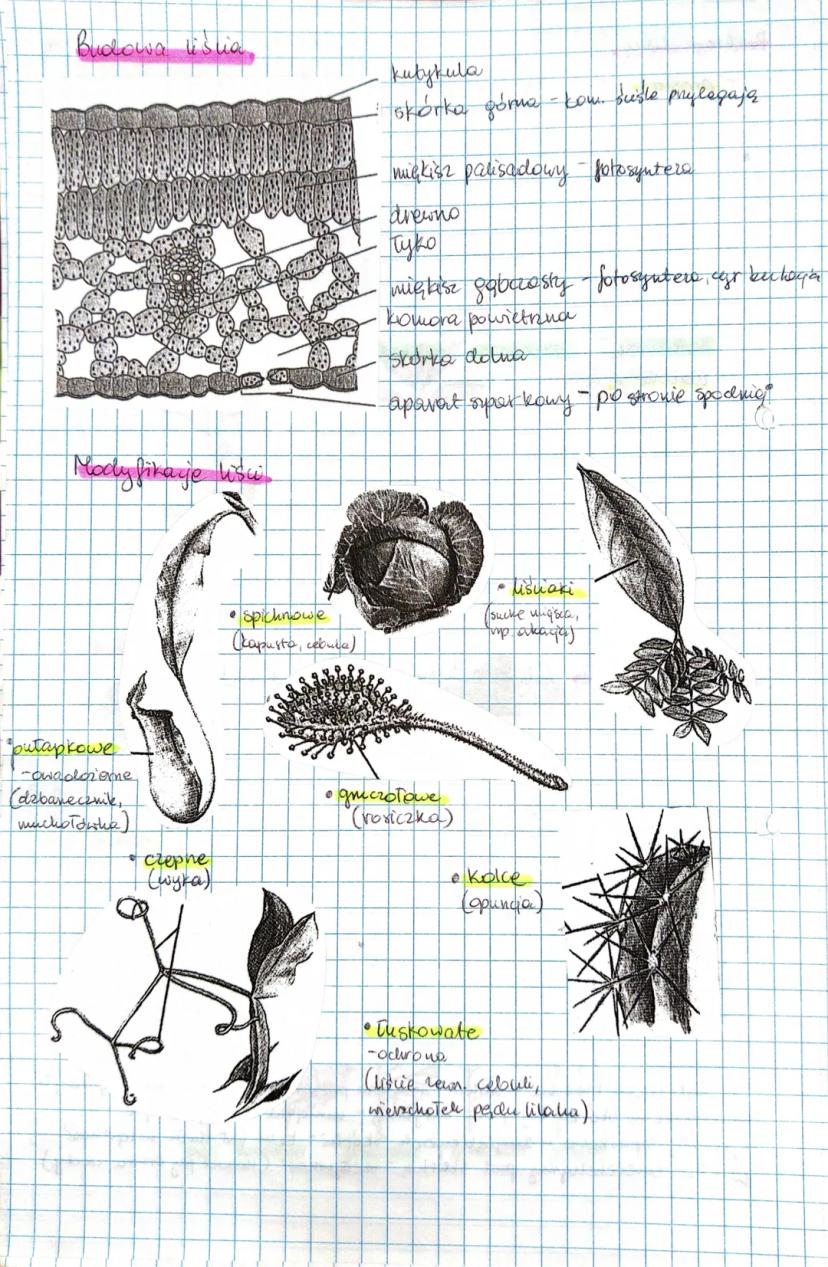 Budowa liścia
kutykula
skórka górna - kom. ściśle przylegają
miękisz palisadowy - fotosynteza
drewno
łyko
miękisz gąbczasty - fotosynteza, cyrkulacja
komora powietrzna
skórka dolna
aparat szparkowy - po stronie spodniej
Modyfikacje liści
• spichrzowe
(kapusta, cebula)
• liściaki
(suche miejsca,
np. akacja)
• pułapkowe
- owadożerne
(dzbanecznik,
muchołówka)
• gruczołowe
(rosiczka)
• czepne
(wyka)
• kolce
(opuncja)
• łuskowate
- ochrona
(liście zewn. cebuli,
wierzchołek pędu lilaka)